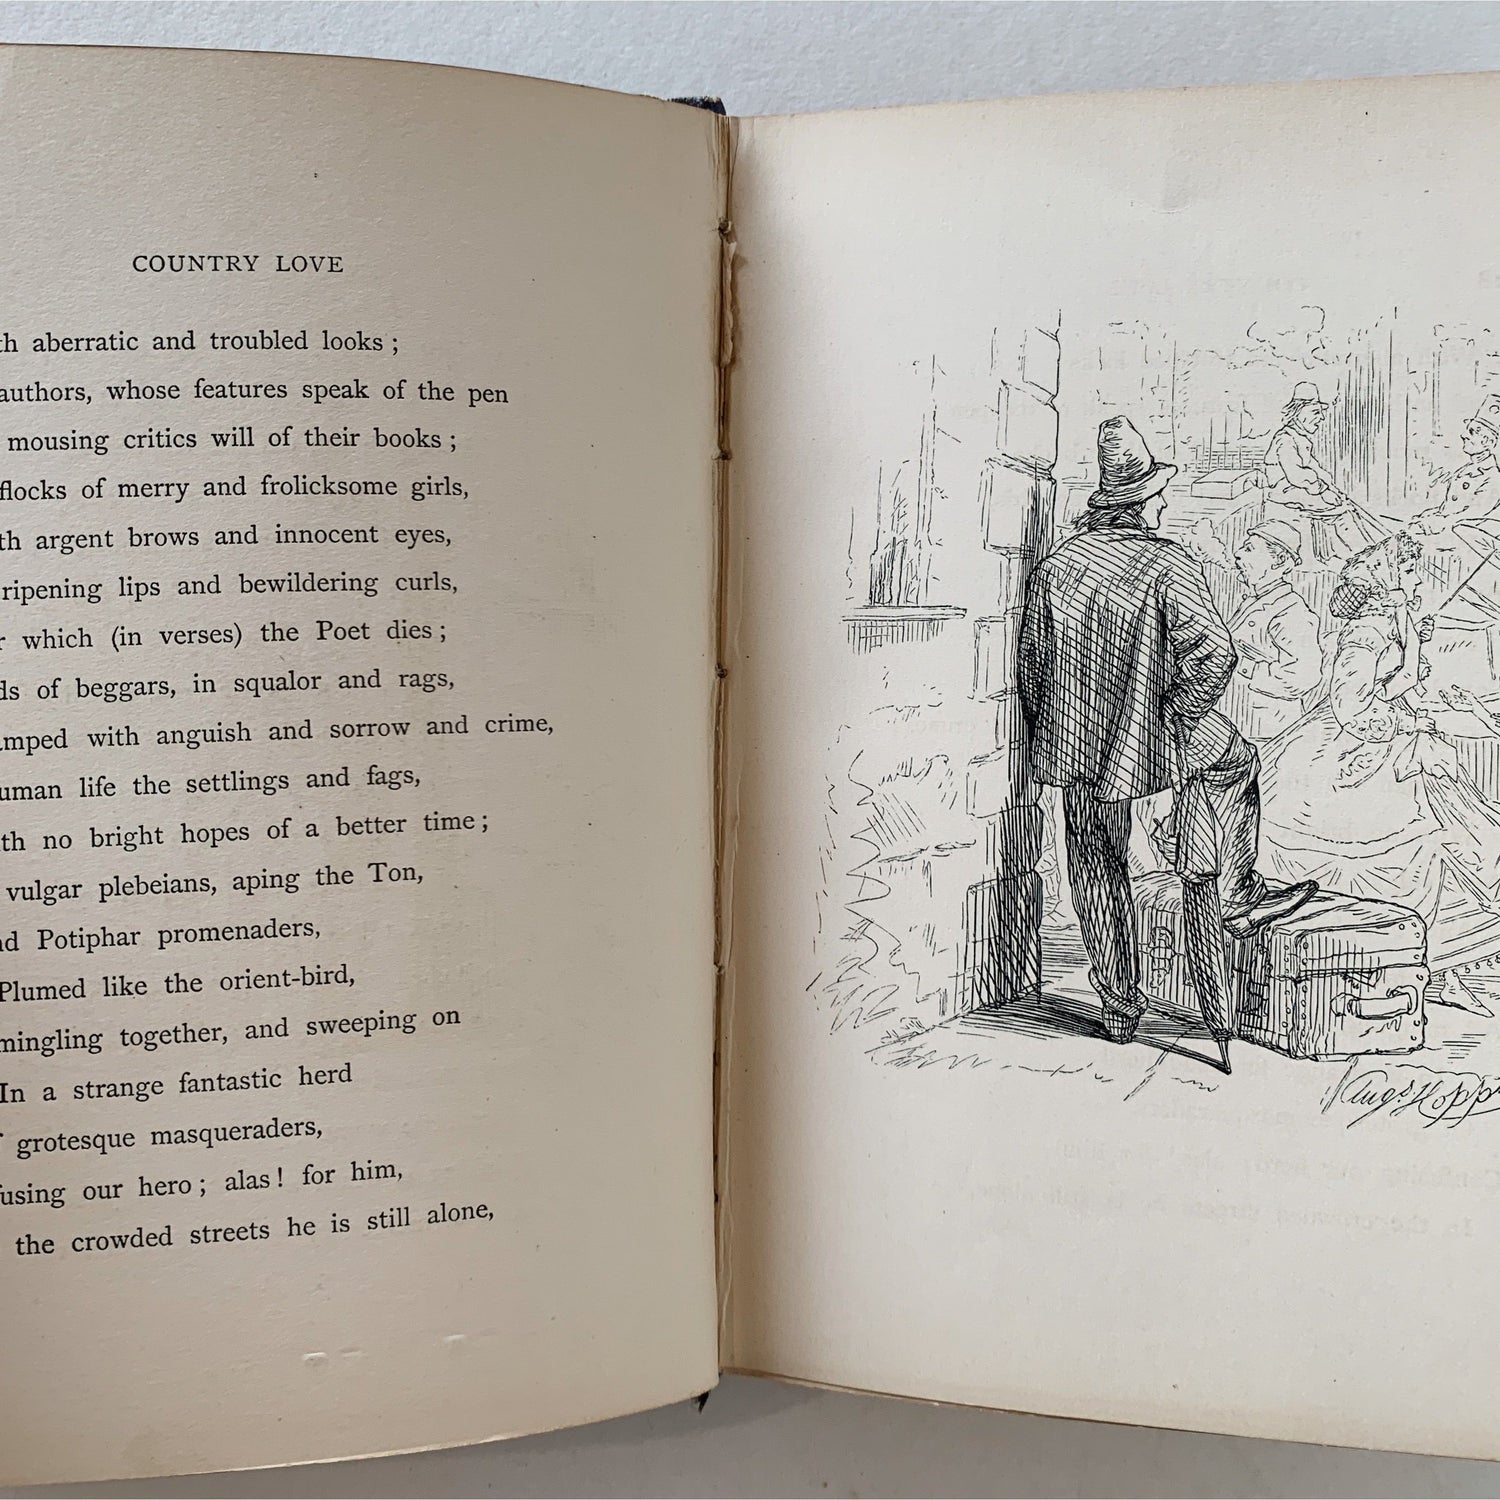 COUNTRY LOVE
th aberratic and troubled looks ;
authors, whose features speak of the pen
mousing critics will of their books ;
flocks of merry and frolicksome girls,
th argent brows and innocent eyes,
ripening lips and bewildering curls,
r which (in verses) the Poet dies ;
ds of beggars, in squalor and rags,
amped with anguish and sorrow and crime,
uman life the settlings and fags,
th no bright hopes of a better time ;
vulgar plebeians, aping the Ton,
nd Potiphar promenaders,
Plumed like the orient-bird,
mingling together, and sweeping on
In a strange fantastic herd
f grotesque masqueraders,
fusing our hero ; alas ! for him,
the crowded streets he is still alone,